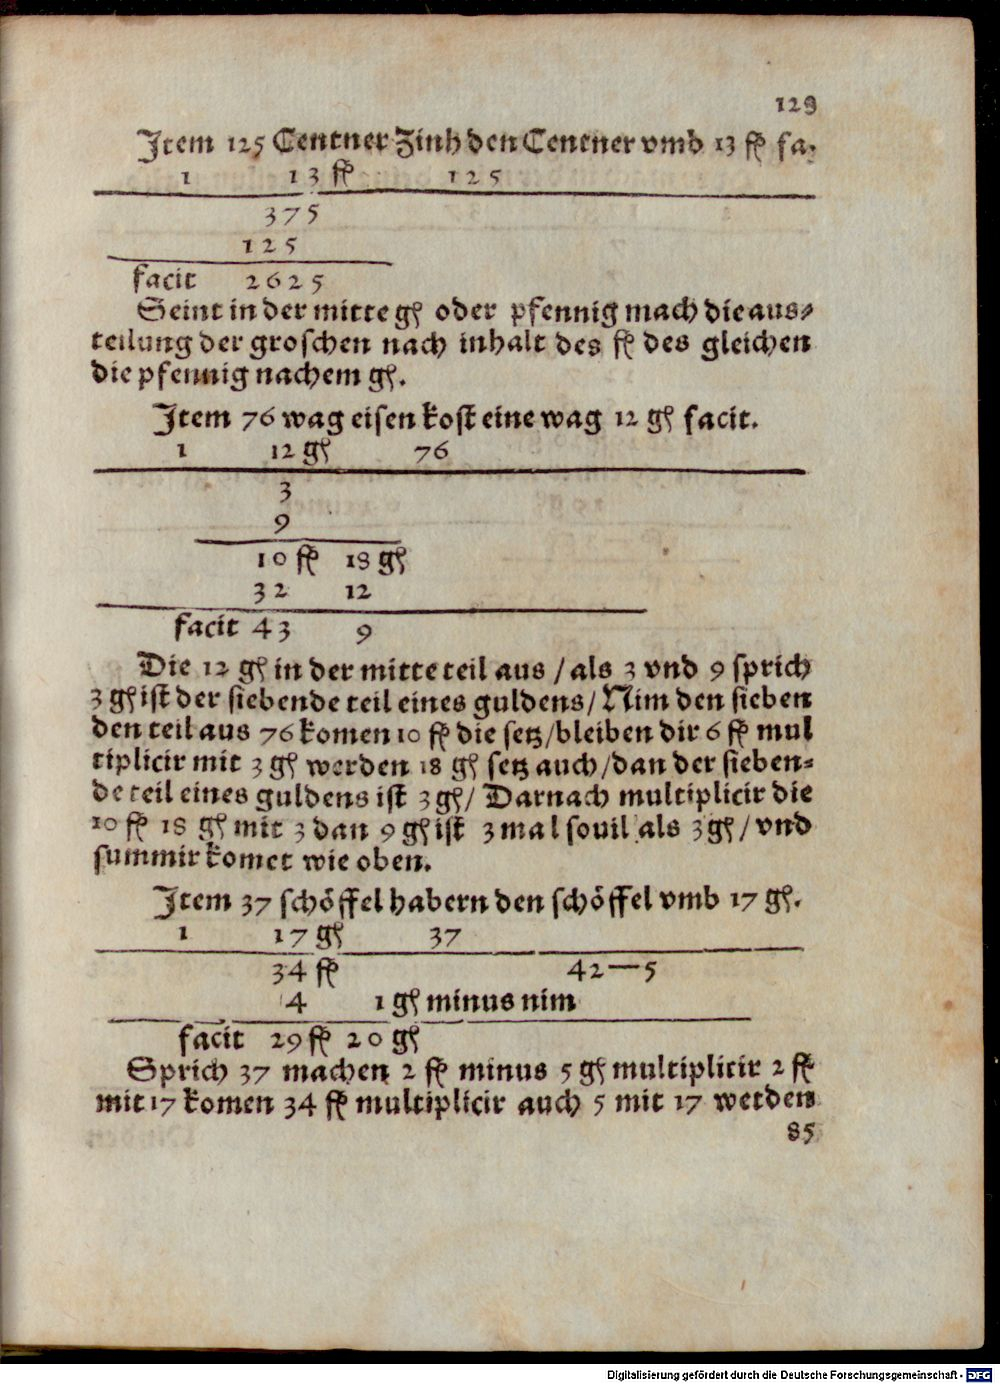 129
Item 125 Centner Zinh den Centner vmb 13 fl fa.
1 13 fl 125
375
125
facit 2625
Seint in der mitte gl oder pfennig mach die aus-
teilung der groschen nach inhalt des fl des gleichen
die pfennig nachem gl.
Item 76 wag eisen kost eine wag 12 gl facit.
1 12 gl 76
3
9
10 fl 18 gl
32 12
facit 43 9
Die 12 gl in der mitte teil aus / als 3 vnd 9 sprich
3 gl ist der siebende teil eines guldens / Nim den sieben
den teil aus 76 komen 10 fl die setz / bleiben dir 6 fl mul
tiplicir mit 3 gl werden 18 gl setz auch / dan der sieben-
de teil eines guldens ist 3 gl / Darnach multiplicir die
10 fl 18 gl mit 3 dan 9 gl ist 3 mal souil als 3 gl / vnd
summir komet wie oben.
Item 37 schöffel habern den schöffel vmb 17 gl.
1 17 gl 37
34 fl 42—5
4 1 gl minus nim
facit 29 fl 20 gl
Sprich 37 machen 2 fl minus 5 gl multiplicir 2 fl
mit 17 komen 34 fl multiplicir auch 5 mit 17 werden
85
Digitalisierung gefördert durch die Deutsche Forschungsgemeinschaft - DFG